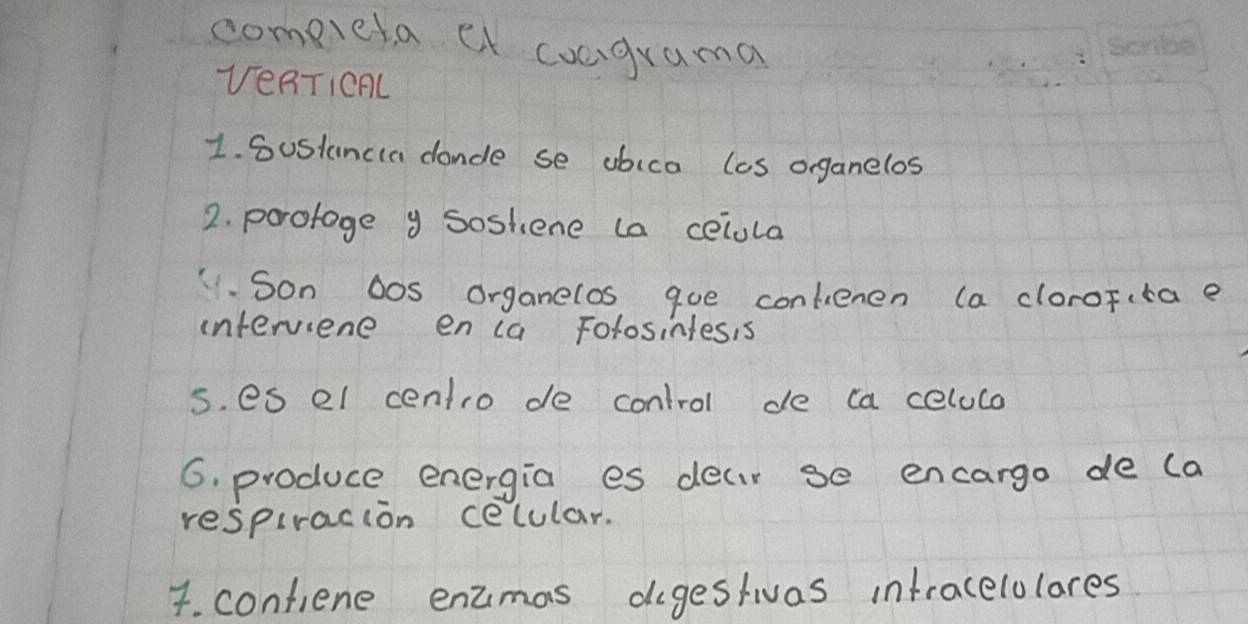 completa el cuagrama
Scribe
VERTICAL
1. Sustancia donde se ubica los organelos
2. porotoge y sostiene la celula
4. Son Dos organelos que contienen la clorofita e
interviene en la Fotosintesis
5. es el centro de control de la celula
6. produce energía es decir se encargo de la
respiración célular.
7. contiene enzimas digestivas intracelulares